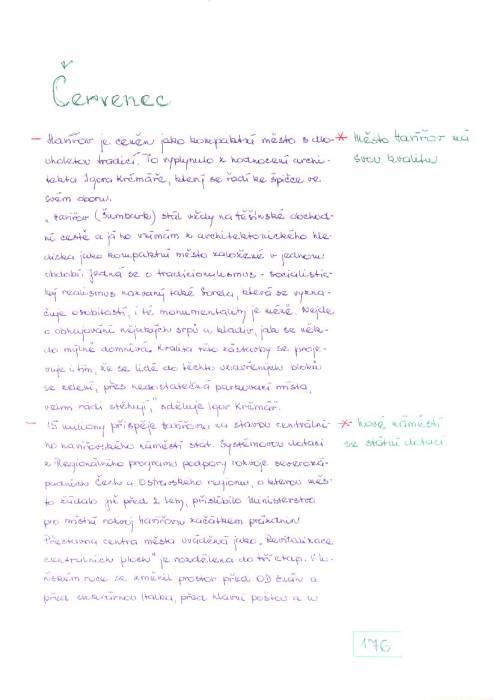 Červenec
— Havířov je ceněn jako kompaktní město s dlou-
holetou tradicí. To vyplynulo z hodnocení archi-
tekta Igora Krčmáře, který se řadí ke špičce ve
svém oboru.
* Město Havířov má
svou kvalitu
„Havířov (Šumbark) stál vždy na těšínské obchod-
ní cestě a já ho vnímám z architektonického hle-
diska jako kompaktní město založené v jednom
období. Jedná se o tradicionalismus - socialistic-
ký realismus nazvaný také Sorela, která se vyzna-
čuje osobitostí, i té monumentality je méně. Nejde
o obhajování nějakých srpů a kladiv, jak se něk-
do mylně domnívá. Kvalita této zástavby se proje-
vuje i tím, že se lidé do těchto uzavřených bloků
se zelení, přes nedostatečná parkovací místa,
velmi rádi stěhují," sděluje Igor Krčmář.
— 15 miliony přispěje Havířovu na stavbu centrální-
ho havířovského náměstí stát. Systémovou dotaci
z Regionálního programu podpory rozvoje severozá-
padních Čech a Ostravského regionu, o kterou měs-
to žádalo již před 2 lety, přislíbilo Ministerstvo
pro místní rozvoj Havířovu začátkem prázdnin.
Přestavba centra města uváděná jako „Revitalizace
centrálních ploch" je rozdělena do tří etap. V lo-
ňském roce se změnil prostor před OD Elán a
před cukrárnou Italka, před hlavní poštou a u
* Nové náměstí
se státní dotací
176